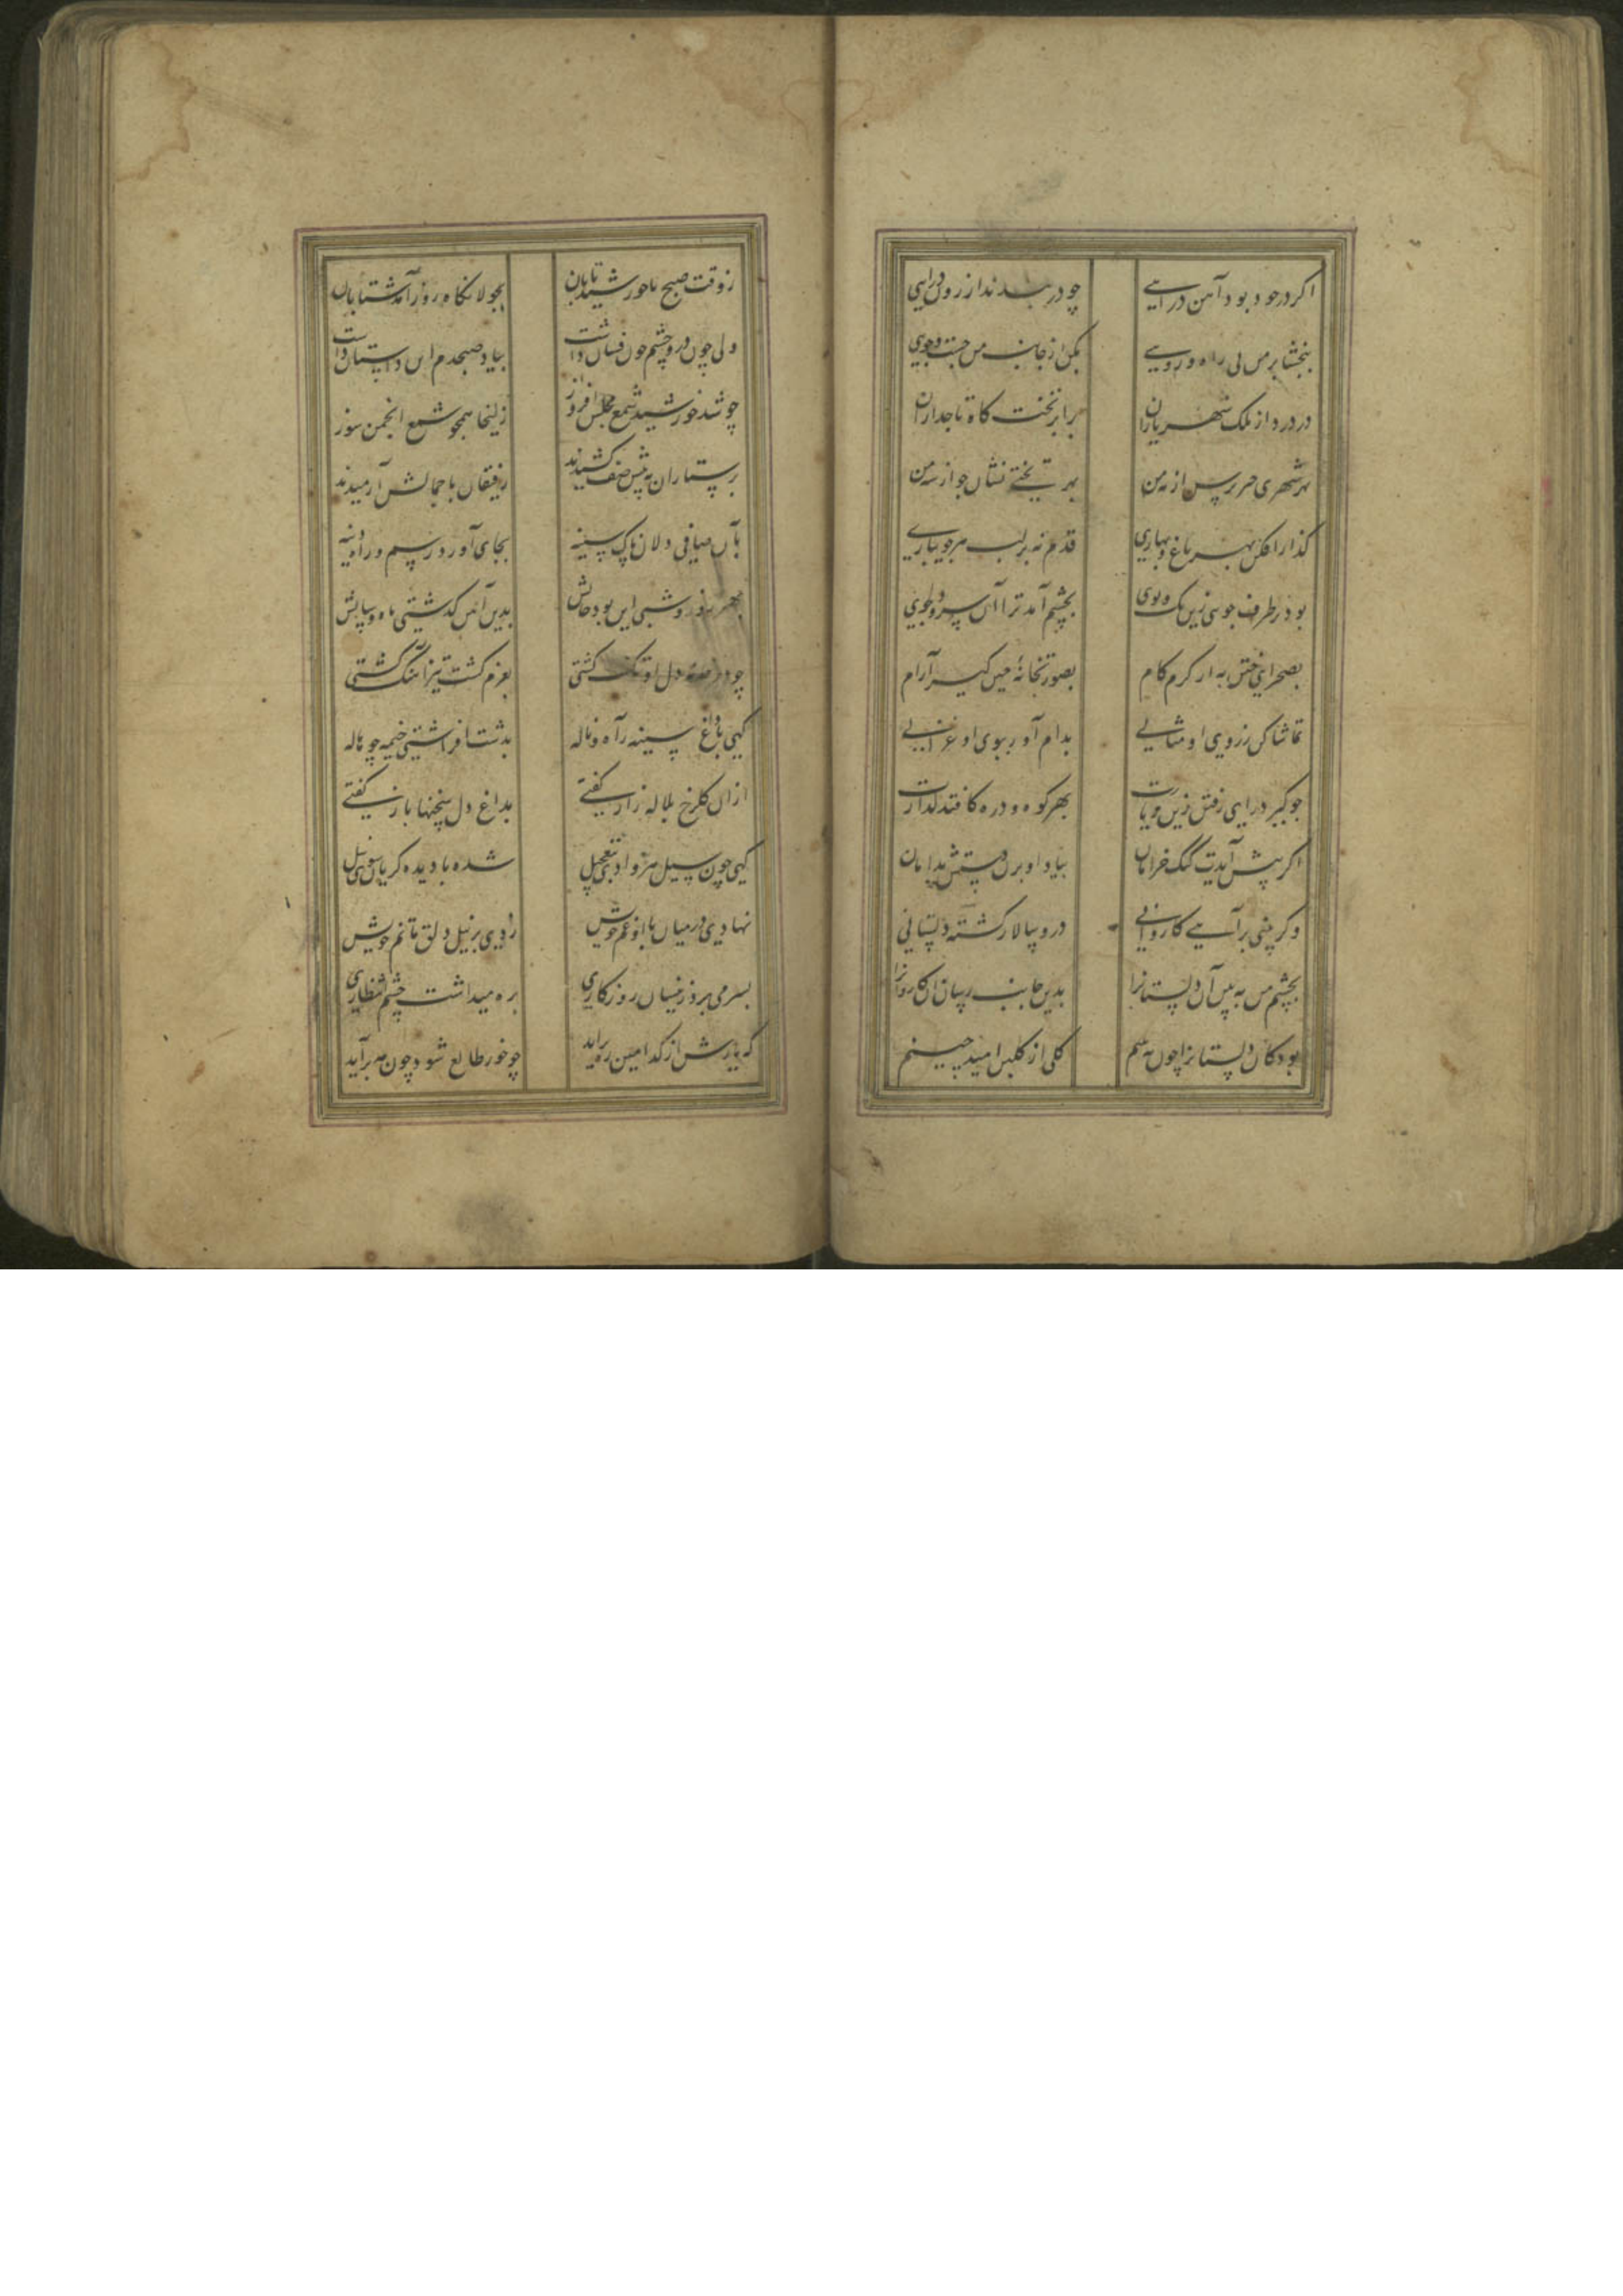 اکر درخود بود آهن درایی چو در بندند از روزن درایی
ببخشا بر من بی راه و رویی بکن از جانب من جست وجویی
در در دار ملک شهریاران برابر تخت کاه تاجداران
بهر شهری خبر پرس از مه من بهر تختی نشان جو از شه من
کذار افکن بهر باغ و بهاری قدم نه بر لب هر جویباری
بود در طرف جوی زین تک و پوی بچشم آمد ترا آن سرو دلجوی
بصحرای ختن نه از کرم کام بصورتخانهٔ چین کیر آرام
تماشا کن ز روی او مثالی بدام آور ببوی او غزالی
چو کیرد رای رفتن زین دیارت بهر کوه و دره کافتد کذارت
اکر پیش آیدت کبک خرامان بیاد او بزن دستش بدامان
وکر بینی براهی کاروانی درو سالار کشته دلستانی
بچشم من ببین آن دلستان را بدین جانب رسان آن کاروان را
بود کان دلستان را چون ببینم کلی از کلبن امید چینم
ز وقت صبح تا خورشید تابان بجولانکاه روز آمد شتابان
ولی چون در دو چشم خون فشان داشت بیاد صبحدم این داستان داشت
چو شد خورشید شمع مجلس افروز زلیخا همچو شمع انجمن سوز
پرستاران به پیش صف کشیدند رفیقان با جمالش آرمیدند
بآن صافی دلان پاک سینه بجای آورد رسم و راه دینه
بهر روز و شبی این بود حالش بدین آیین کذشتی ماه و سالش
چو در خانه دل او تنک کشتی بعزم کشت تیز آهنک کشتی
کهی با داغ سینه ز آه و ناله بدشت افراشتی خیمه چو لاله
ازان کلرخ بلاله راز کفتی بداغ دل سخنها باز کفتی
کهی چون سیل هر وادی بتعجیل شده با دیده کریان سوی نیل
نهادی در میان با او غم خویش زدی بر نیل دلق ماتم خویش
بسر می برد زینسان روزکاری بره میداشت چشم انتظاری
که یارش از کدامین ره براید چو خور طالع شود چون مه برآید